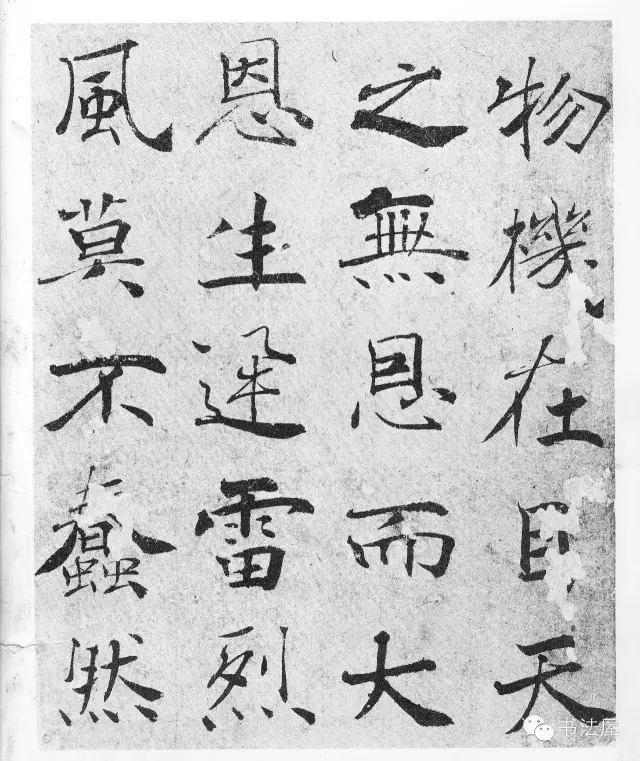 物機在目天
之無恩而大
恩生迅雷烈
風莫不蠢然
书法屋